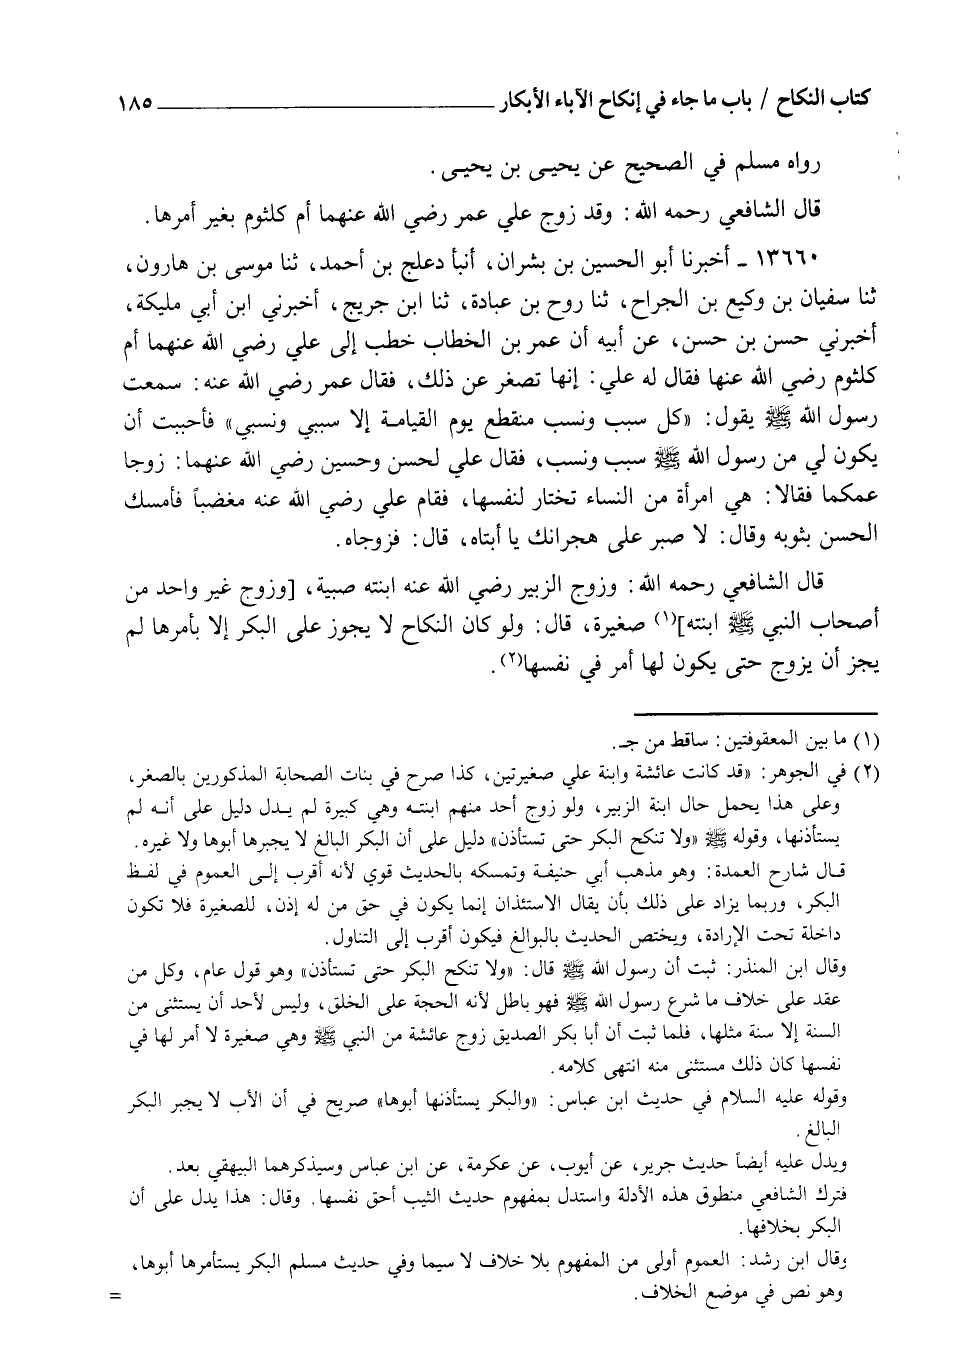 كتاب النكاح / باب ما جاء في إنكاح الآباء الأبكار ١٨٥
رواه مسلم في الصحيح عن يحيى بن يحيى.
قال الشافعي رحمه الله: وقد زوج علي عمر رضي الله عنهما أم كلثوم بغير أمرها.
١٣٦٦٠ ـ أخبرنا أبو الحسين بن بشران، أنبأ دعلج بن أحمد، ثنا موسى بن هارون،
ثنا سفيان بن وكيع بن الجراح، ثنا روح بن عبادة، ثنا ابن جريج، أخبرني ابن أبي مليكة،
أخبرني حسن بن حسن، عن أبيه أن عمر بن الخطاب خطب إلى علي رضي الله عنهما أم
كلثوم رضي الله عنها فقال له علي: إنها تصغر عن ذلك، فقال عمر رضي الله عنه: سمعت
رسول الله ﷺ يقول: «كل سبب ونسب منقطع يوم القيامة إلا سببي ونسبي» فأحببت أن
يكون لي من رسول الله ﷺ سبب ونسب، فقال علي لحسن وحسين رضي الله عنهما: زوجا
عمكما فقالا: هي امرأة من النساء تختار لنفسها، فقام علي رضي الله عنه مغضباً فأمسك
الحسن بثوبه وقال: لا صبر على هجرانك يا أبتاه، قال: فزوجاه.
قال الشافعي رحمه الله: وزوج الزبير رضي الله عنه ابنته صبية، [وزوج غير واحد من
أصحاب النبي ﷺ ابنته](١) صغيرة، قال: ولو كان النكاح لا يجوز على البكر إلا بأمرها لم
يجز أن يزوج حتى يكون لها أمر في نفسها(٢).
(١) ما بين المعقوفتين: ساقط من جـ.
(٢) في الجوهر: «قد كانت عائشة وابنة علي صغيرتين، كذا صرح في بنات الصحابة المذكورين بالصغر،
وعلى هذا يحمل حال ابنة الزبير، ولو زوج أحد منهم ابنته وهي كبيرة لم يدل دليل على أنه لم
يستأذنها، وقوله ﷺ «ولا تنكح البكر حتى تستأذن» دليل على أن البكر البالغ لا يجبرها أبوها ولا غيره.
قال شارح العمدة: وهو مذهب أبي حنيفة وتمسكه بالحديث قوي لأنه أقرب إلى العموم في لفظ
البكر، وربما يزاد على ذلك بأن يقال الاستئذان إنما يكون في حق من له إذن، للصغيرة فلا تكون
داخلة تحت الإرادة، ويختص الحديث بالبوالغ فيكون أقرب إلى التناول.
وقال ابن المنذر: ثبت أن رسول الله ﷺ قال: «ولا تنكح البكر حتى تستأذن» وهو قول عام، وكل من
عقد على خلاف ما شرع رسول الله ﷺ فهو باطل لأنه الحجة على الخلق، وليس لأحد أن يستثنى من
السنة إلا سنة مثلها، فلما ثبت أن أبا بكر الصديق زوج عائشة من النبي ﷺ وهي صغيرة لا أمر لها في
نفسها كان ذلك مستثنى منه انتهى كلامه.
وقوله عليه السلام في حديث ابن عباس: «والبكر يستأذنها أبوها» صريح في أن الأب لا يجبر البكر
البالغ.
ويدل عليه أيضاً حديث جرير، عن أيوب، عن عكرمة، عن ابن عباس وسيذكرهما البيهقي بعد.
فترك الشافعي منطوق هذه الأدلة واستدل بمفهوم حديث الثيب أحق نفسها. وقال: هذا يدل على أن
البكر بخلافها.
وقال ابن رشد: العموم أولى من المفهوم بلا خلاف لا سيما وفي حديث مسلم البكر يستأمرها أبوها،
وهو نص في موضع الخلاف. =